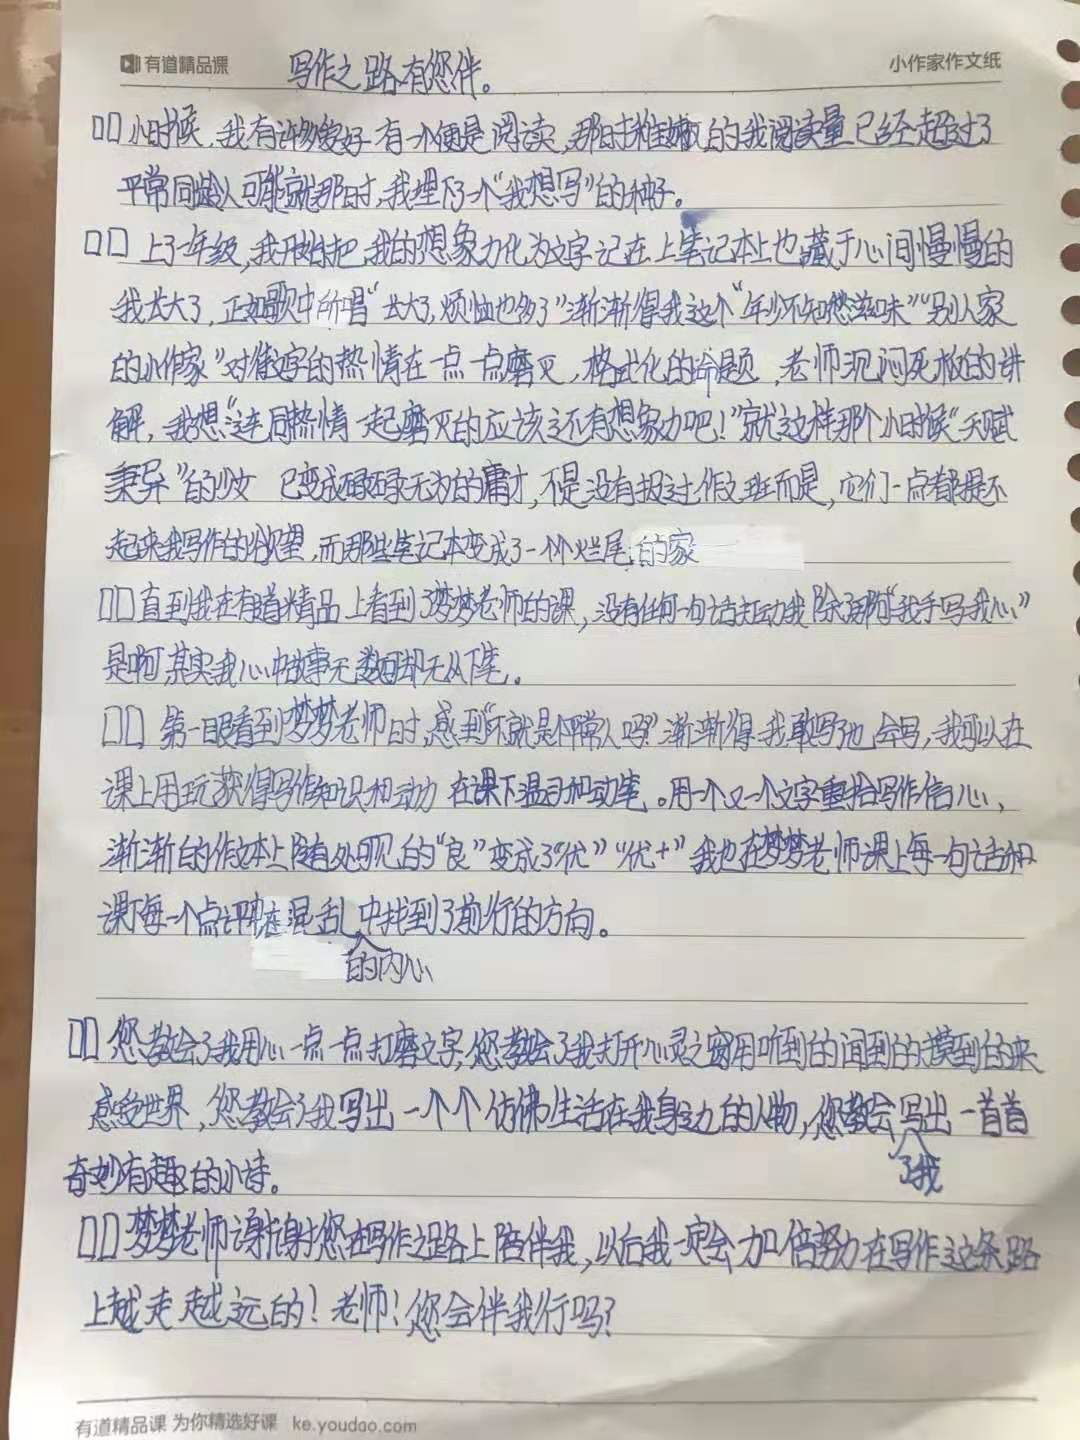 有道精品课
小作家作文纸
写作之路有您伴。
小时候，我有许多爱好有一个便是阅读，那时稚嫩的我阅读量已经超过了
平常同龄人可能就那时，我埋下了一个“我想写”的种子。
上了一年级，我开始把我的想象力化为文字记在上笔记本上也藏于心间慢慢的
我长大了，正如歌中所唱“长大了，烦恼也多了”渐渐得我这个“年少不知愁滋味”“别人家
的小作家”对作文字的热情在一点一点磨灭，格式化的命题，老师沉闷死板的讲
解，我想“连同热情一起磨灭的应该还有想象力吧！”就这样那个小时候“天赋
秉异”的少女 已变成碌碌无为的庸才，不是没有报过作文班而是，它们一点都提不
起来我写作的欲望，而那些笔记本变成了一个个烂尾的家
直到我在有道精品上看到了梦梦老师的课，没有任何一句话打动我除了那句“我手写我心”
是啊，其实我心中故事无数可却无从下笔。
第一眼看到梦梦老师时，感到“不就是个平常人吗？”渐渐得我敢写了也会写，我可以在
课上用玩获得写作知识和动力 在课下温习和动笔。用一个又一个文字重拾写作信心，
渐渐的作文本上随处可见的“良”变成了“优”“优+”我也在梦梦老师课上每一句话和
课下每一个点评中在混乱的内心中找到了前行的方向。
您教会了我用心一点一点打磨文字，您教会了我打开心灵之窗用听到的闻到的摸到的来
感受世界，您教会了我写出一个个仿佛生活在我身边的人物，您教会了我写出一首首
奇妙有趣的小诗。
梦梦老师谢谢您在写作之路上陪伴我，以后我一定会加倍努力在写作这条路
上越走越远的！老师！您会伴我行吗？
有道精品课 为你精选好课 ke.youdao.com